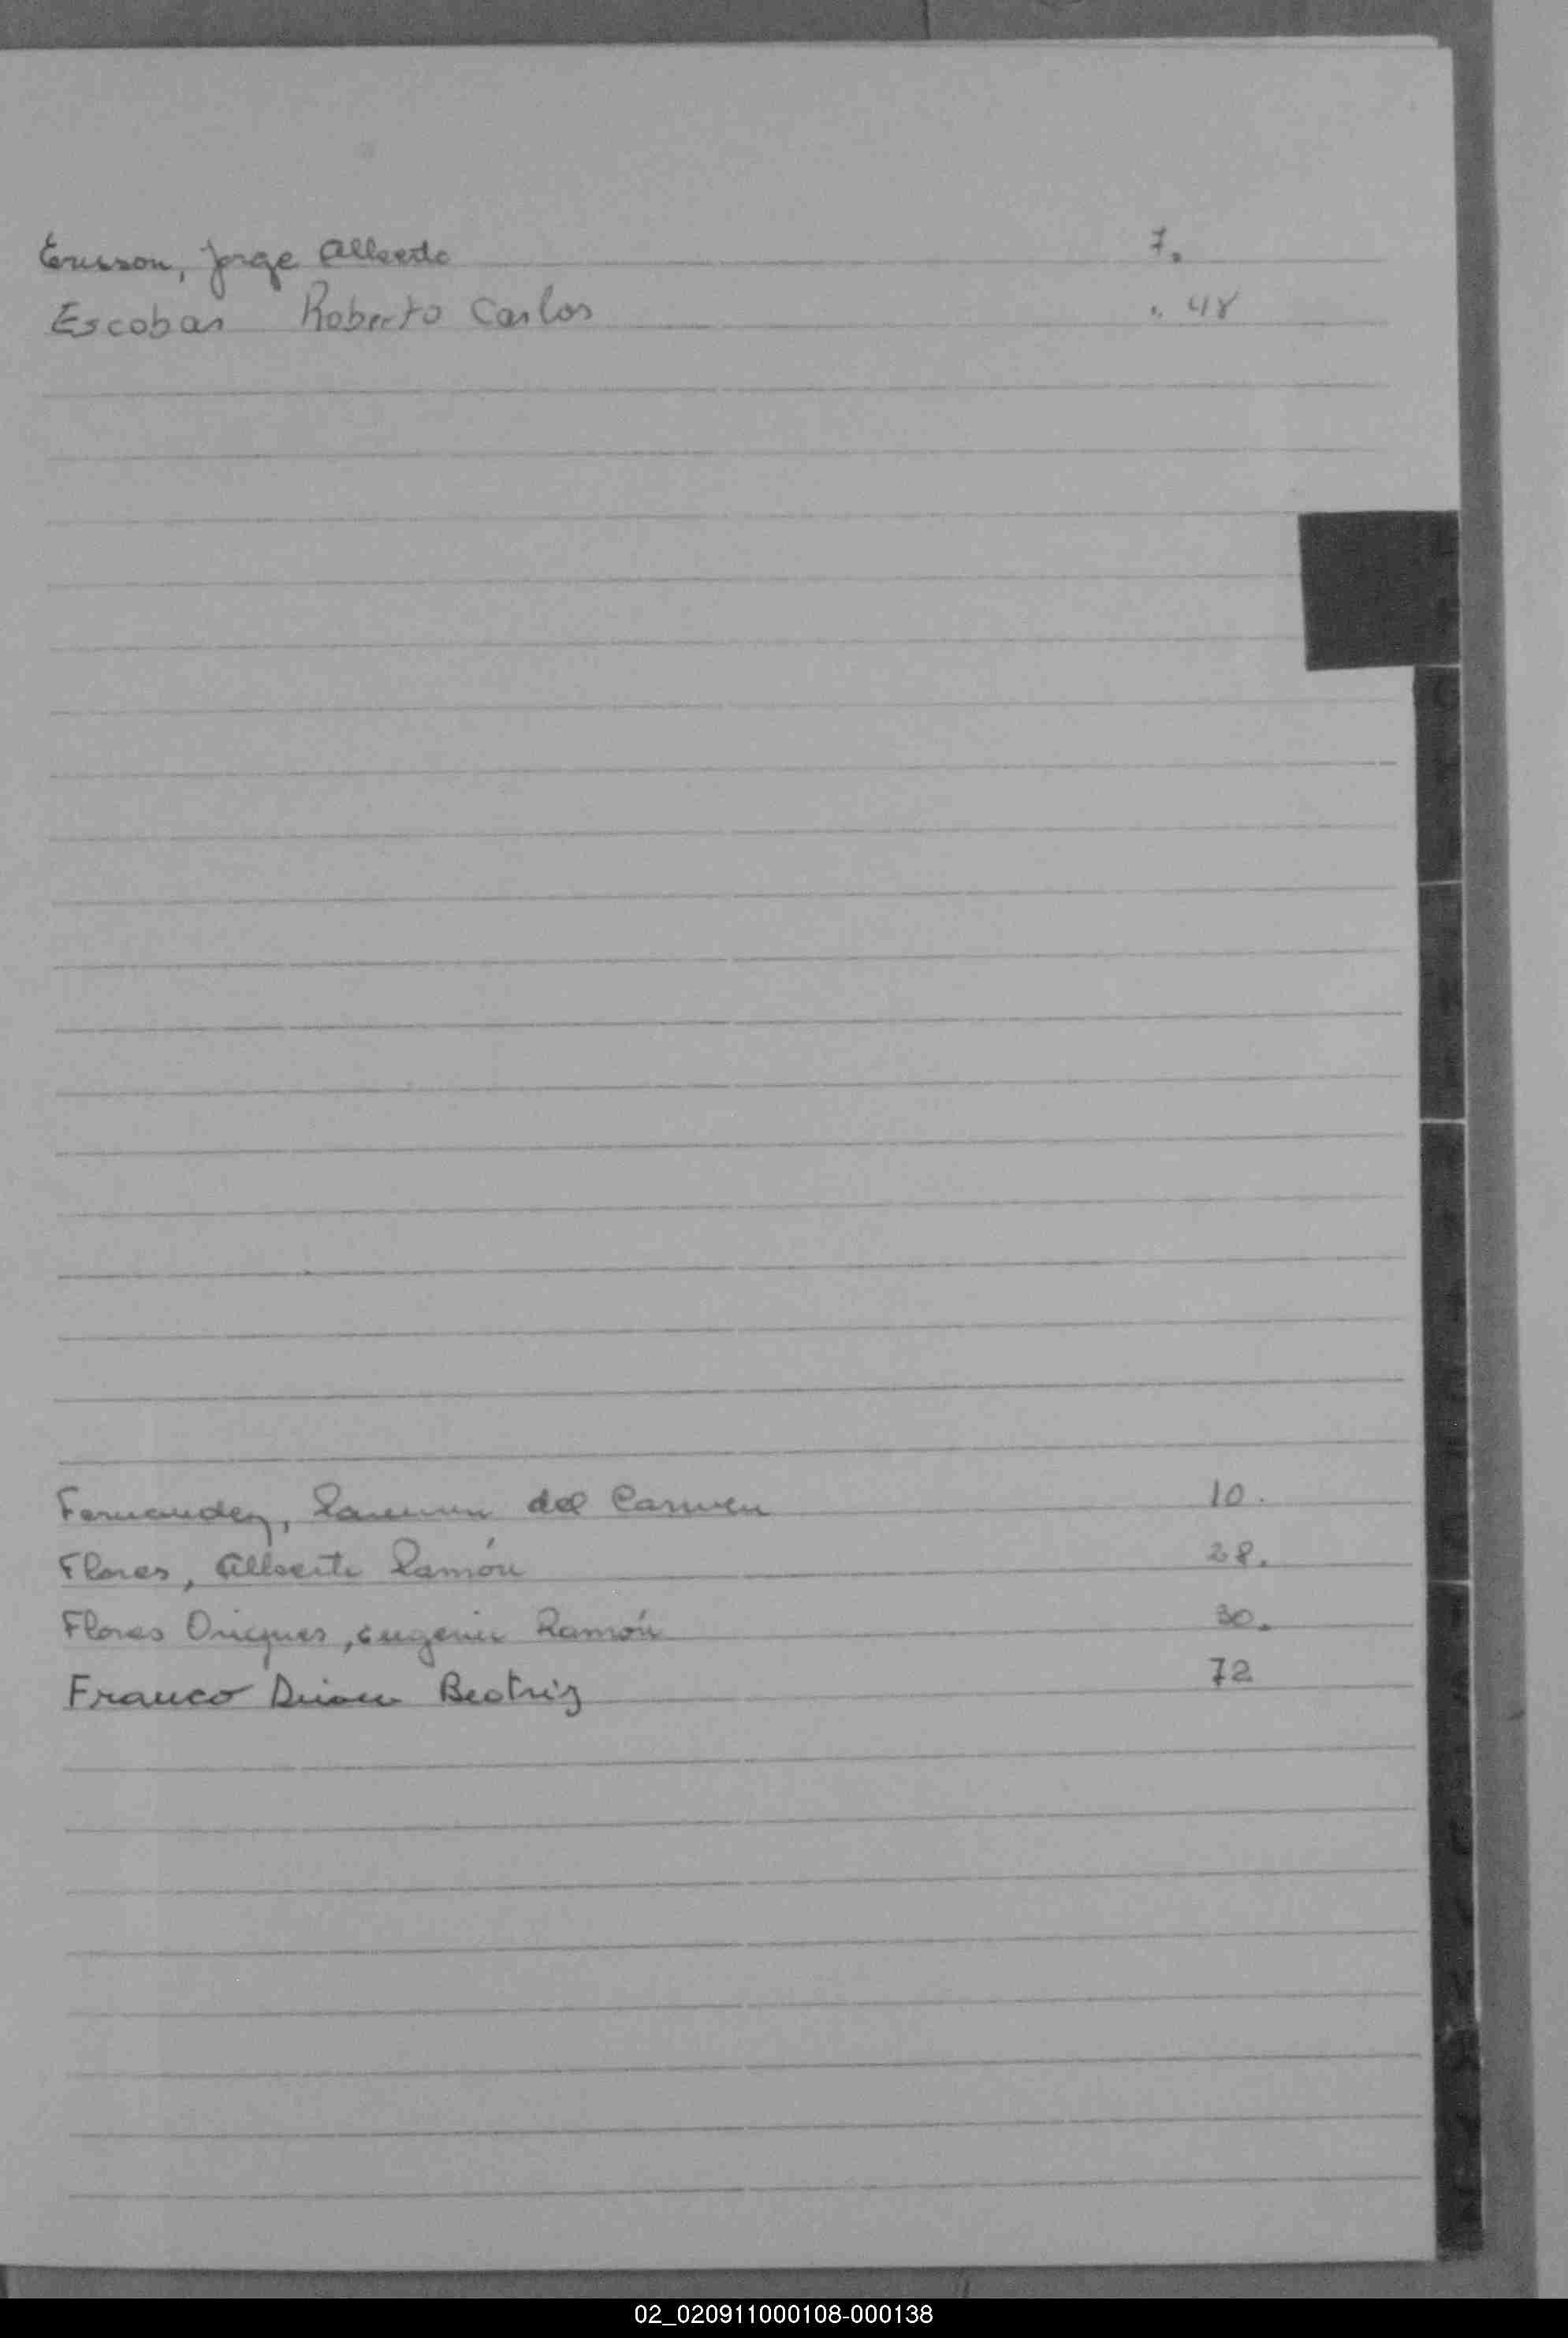 Jorge Alberto 7.
Escobar Roberto Carlos 48
Fernandez, del Carmen 10.
Flores, Alberto Ramón 28.
Flores Ramón 30.
Franco Beatriz 72
02_020911000108-000138